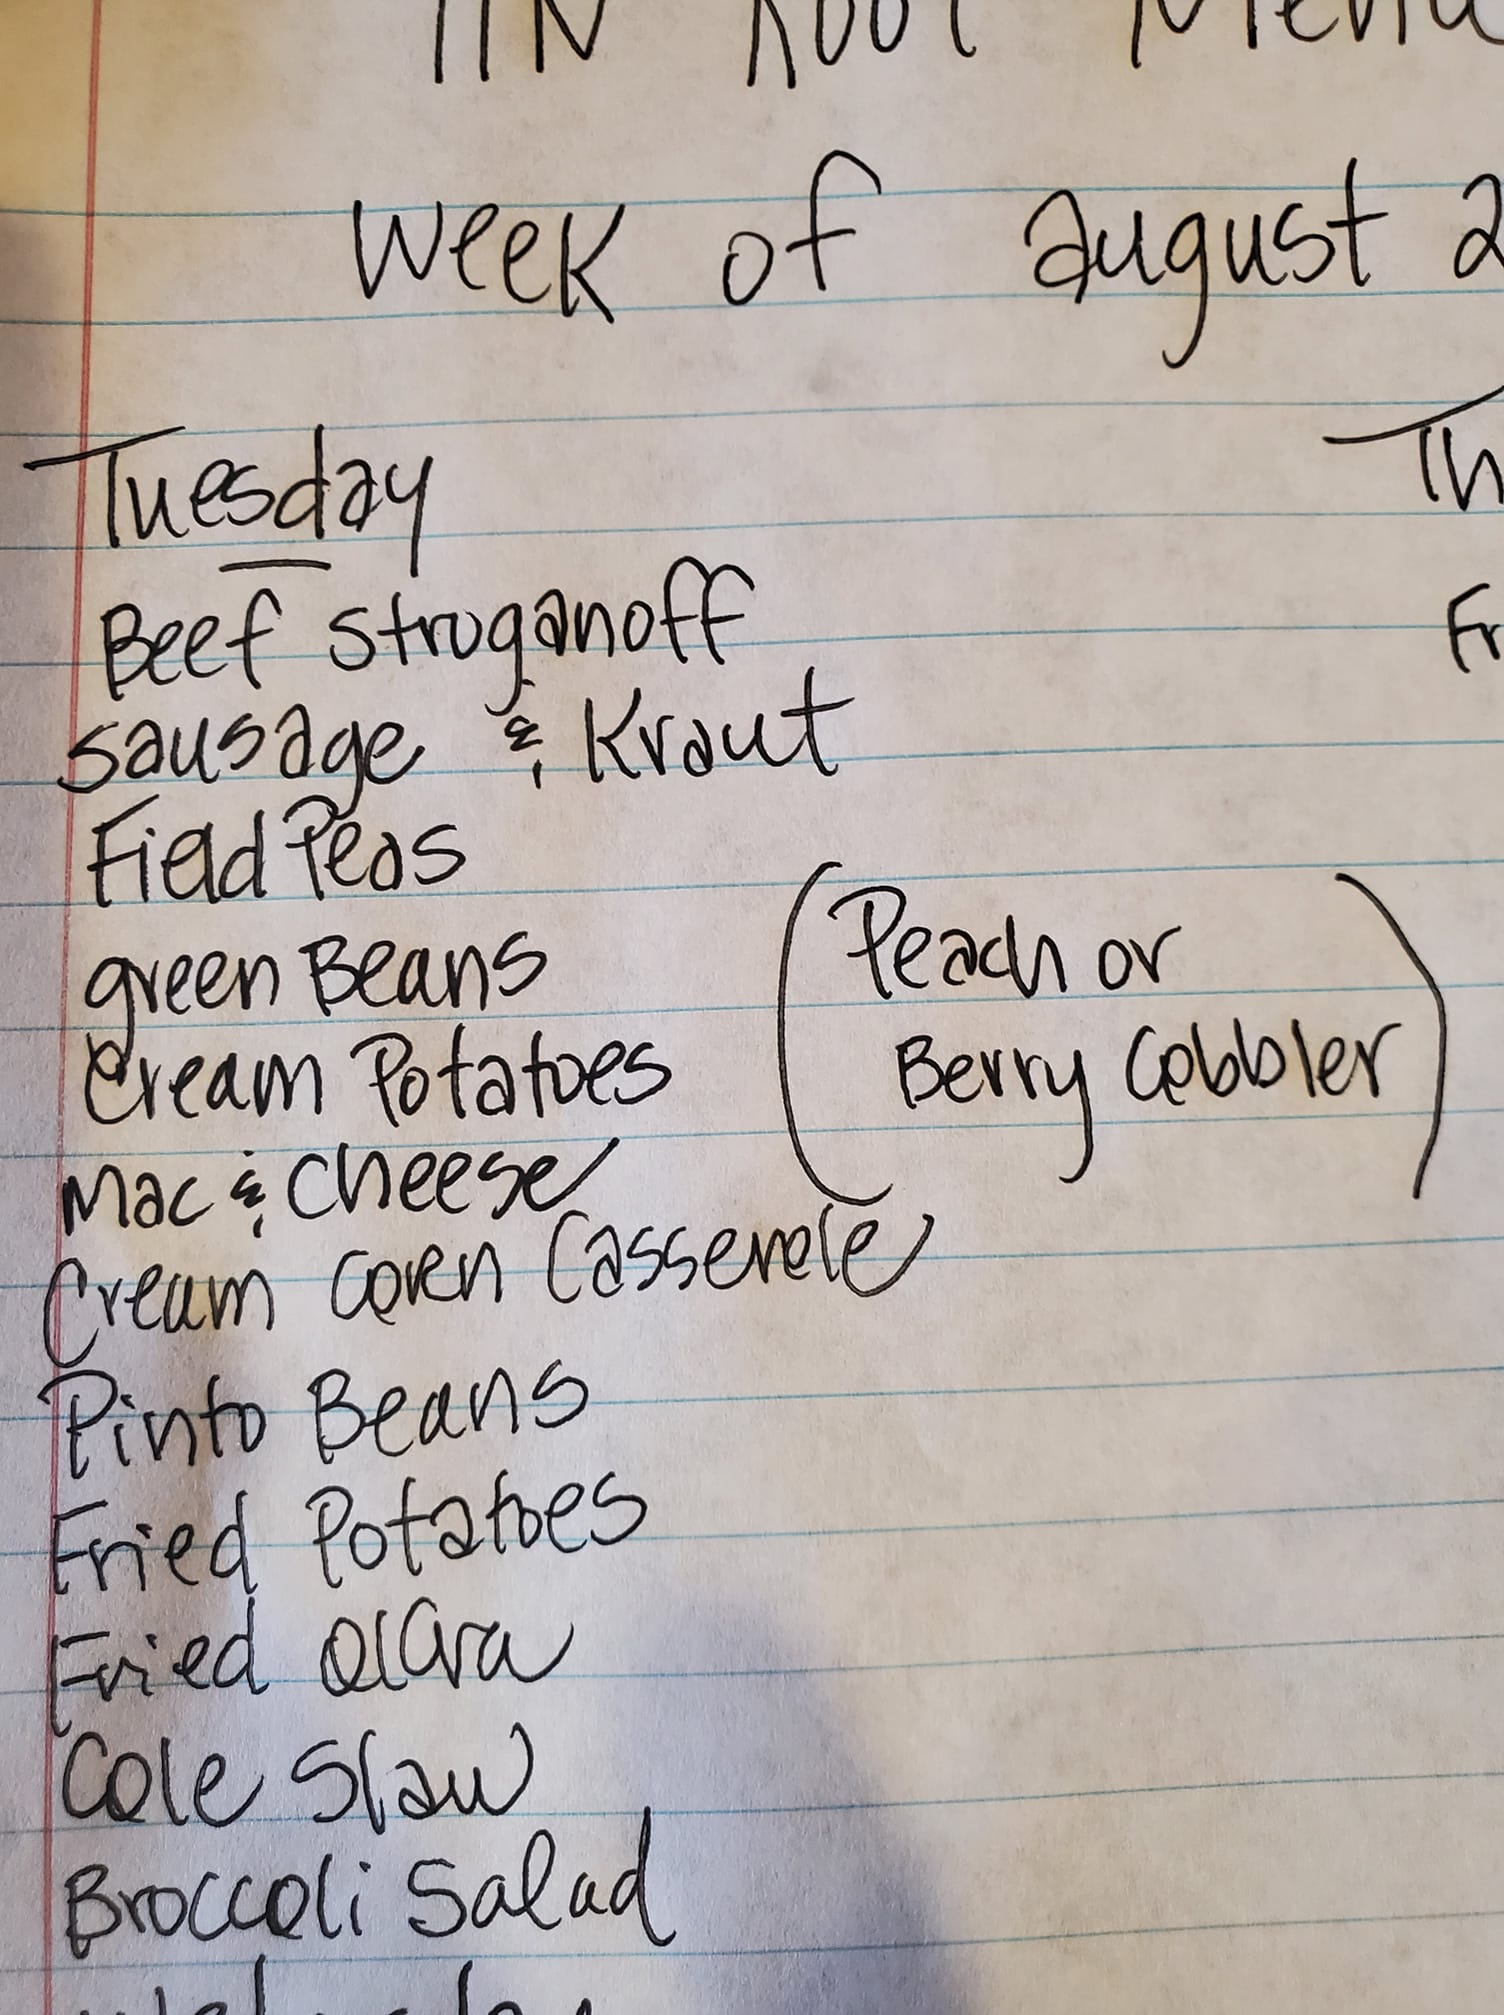 TIN ROOF Menu
Week of august 2
Tuesday
Th
Beef stroganoff
Fr
sausage & Kraut
Field Peas
green Beans
(Peach or
Berry Cobbler)
Cream Potatoes
Mac & Cheese
Cream Corn Casserole
Pinto Beans
Fried Potatoes
Fried Okra
Cole Slaw
Broccoli Salad